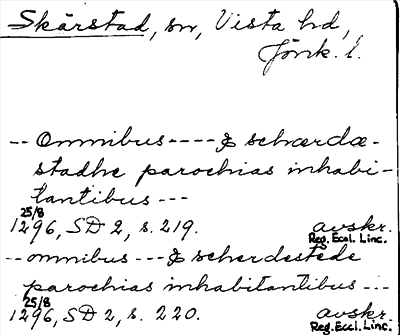 Skärstad, sn, Vista hd,
Jönk. l.
-- Omnibus ---- & schærdæ-
stadhe parochias inhabi-
tantibus ---
25/8
1296, SD 2, s. 219. avskr.
Reg. Eccl. Linc.
-- omnibus --- & scherdestede
parochias inhabitantibus ---
25/8
1296, SD 2, s. 220. avskr.
Reg. Eccl. Linc.